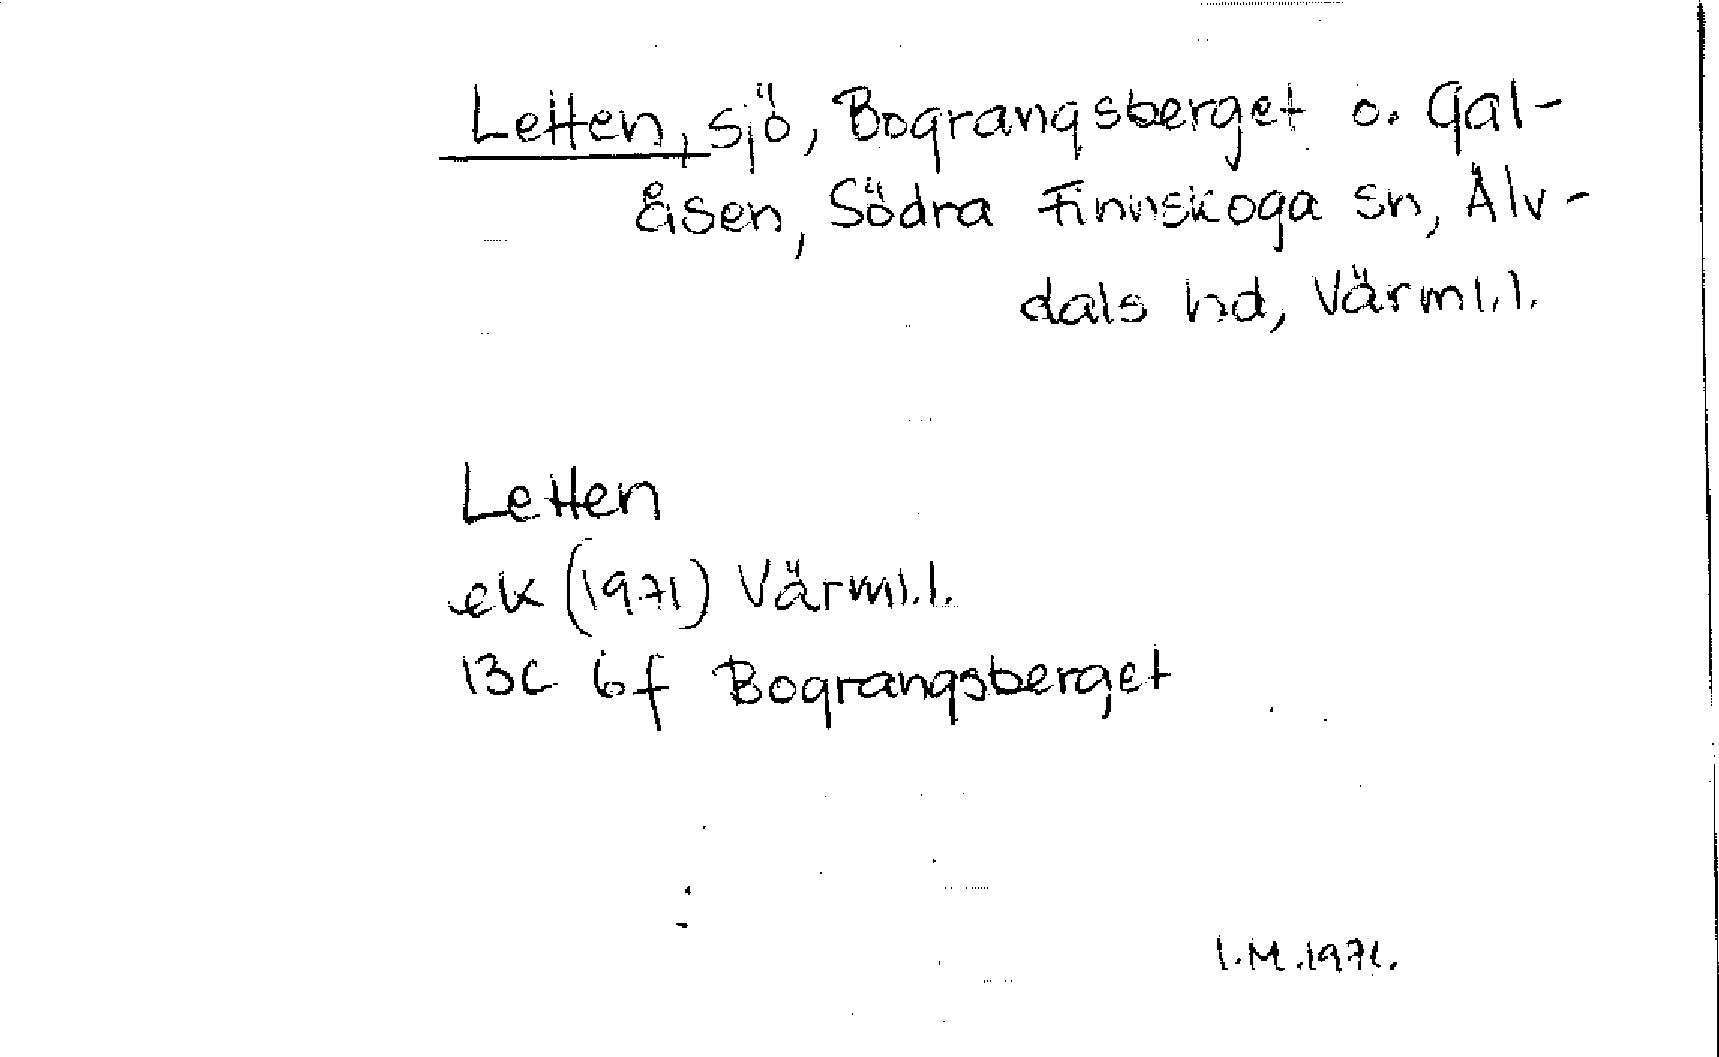 Letten, sjö, Bograngsberget o. Gal-
åsen, Södra Finnskoga sn, Älv-
dals hd, Värml.l.
Letten
ek (1971) Värml.l.
13C 6f Bograngsberget
I.M.1971.